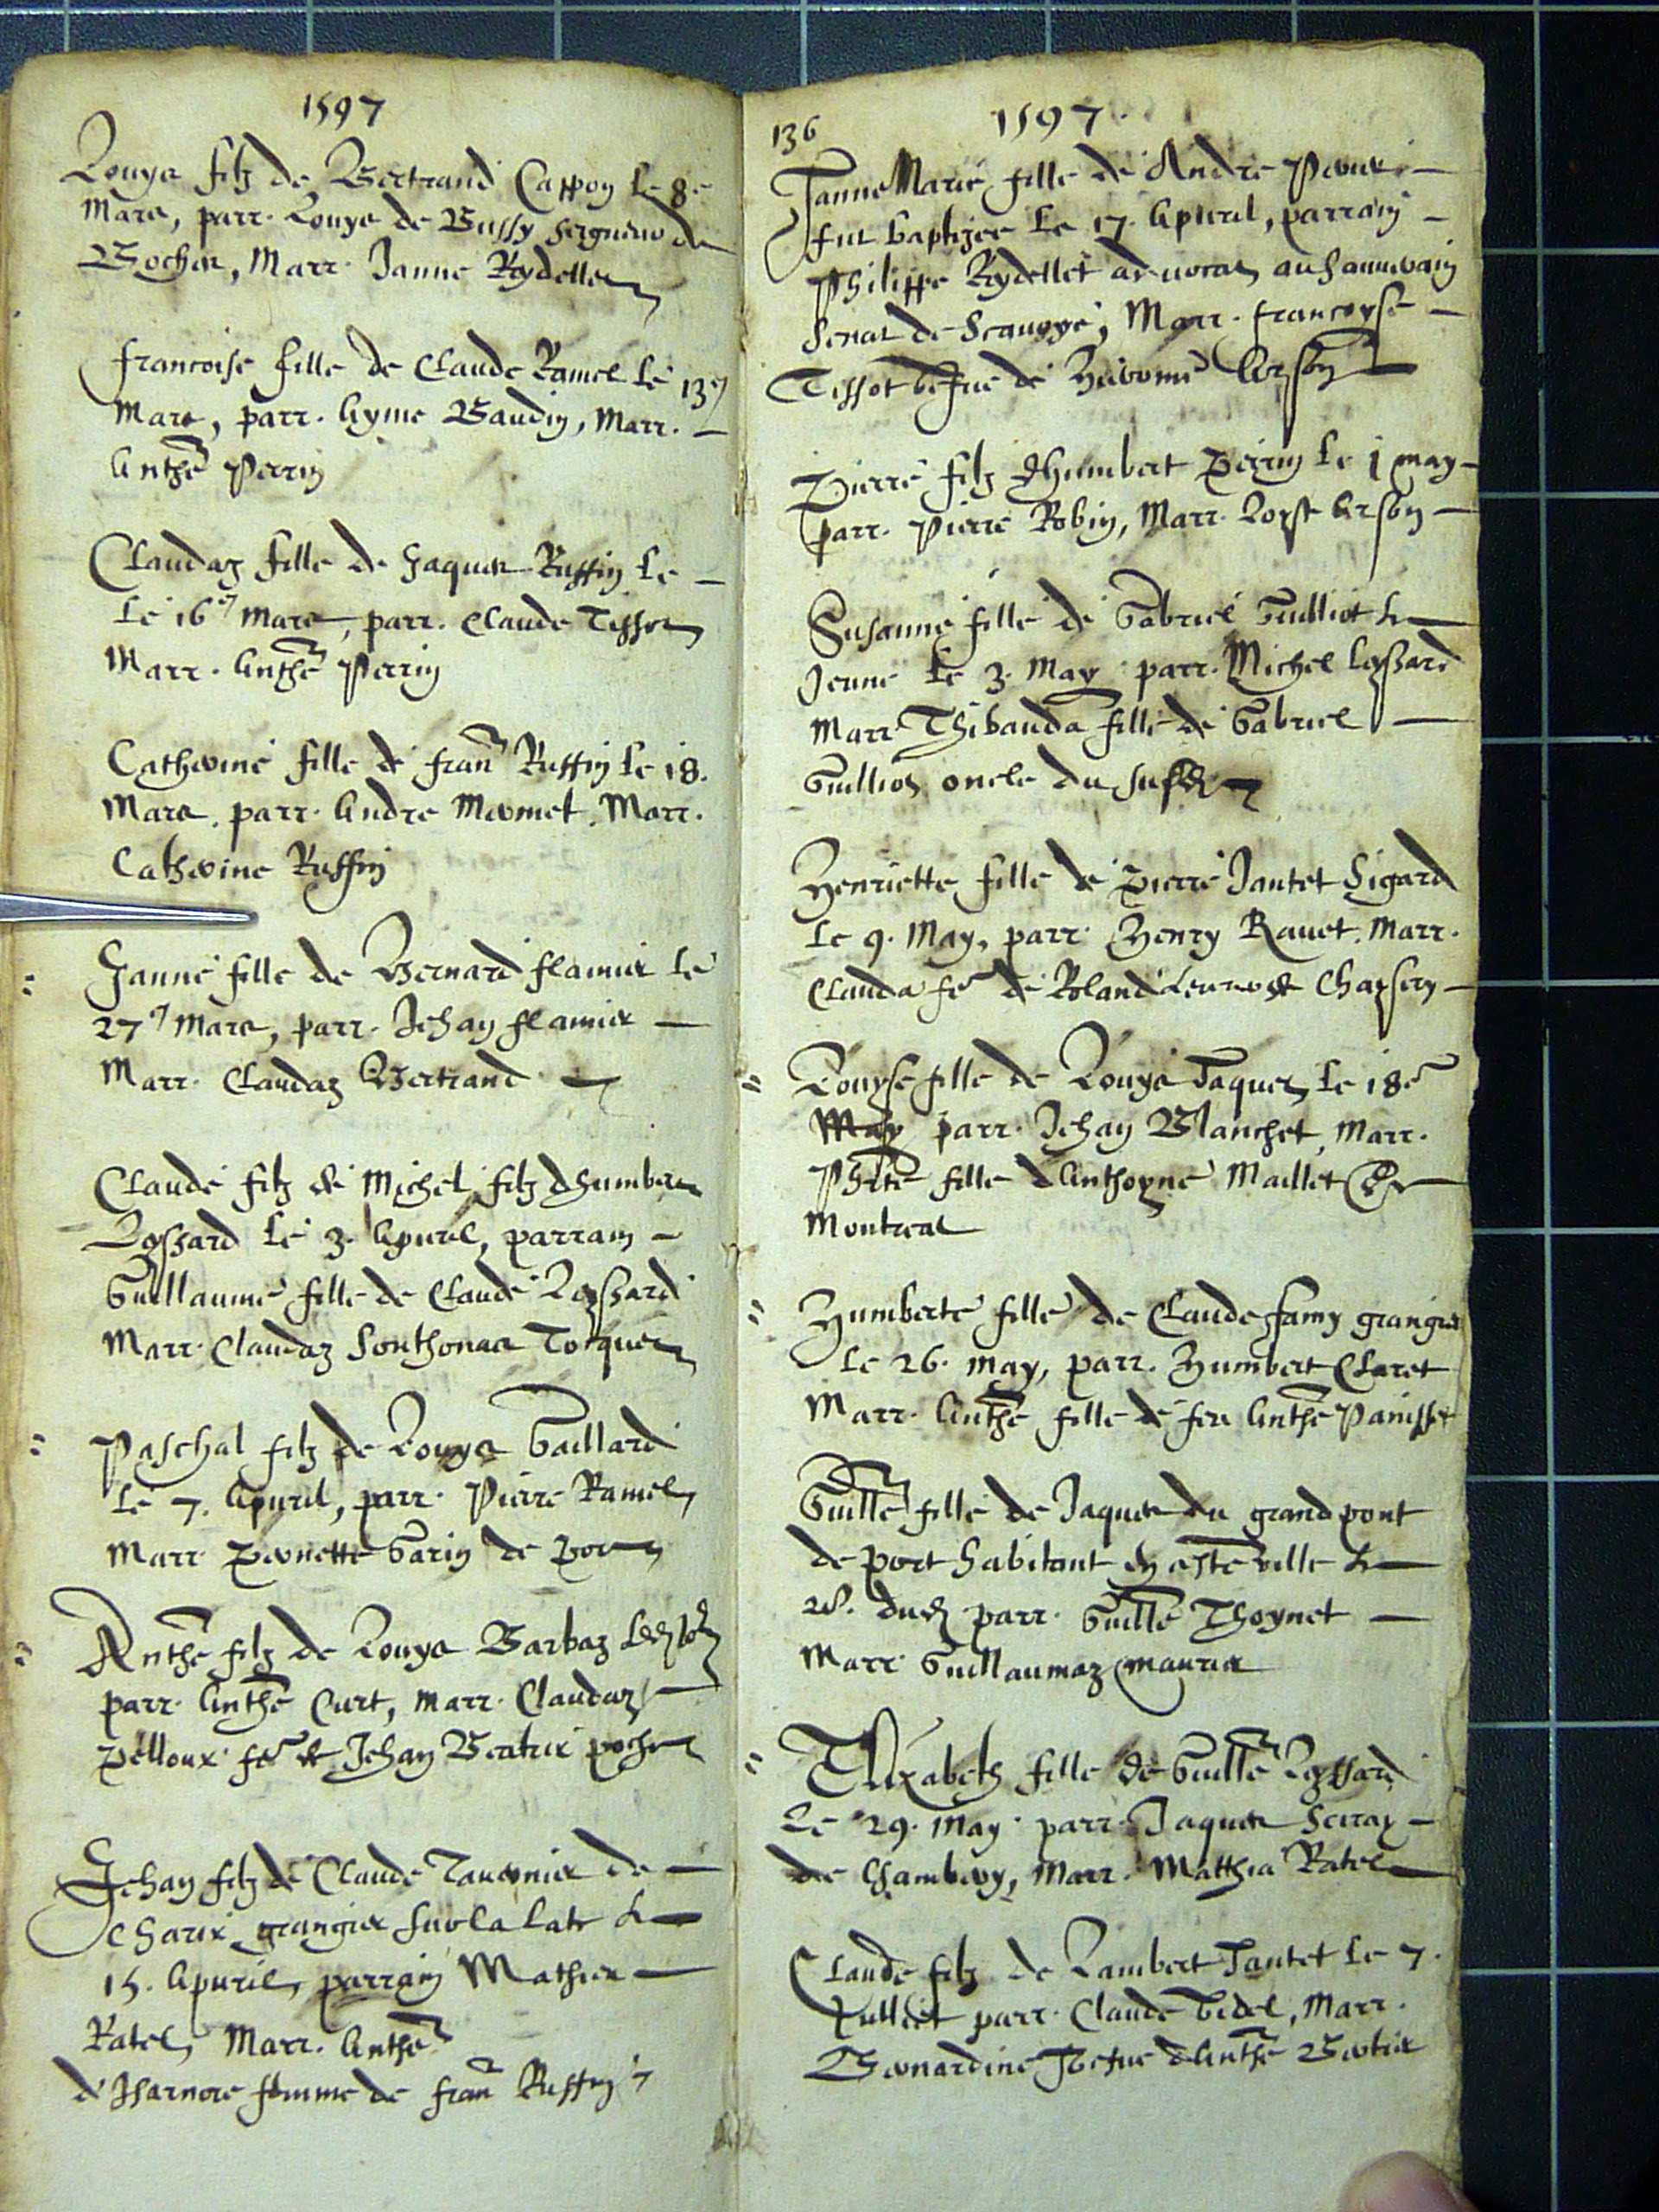 1597
Louys filz de Bertrand Cappon le 8e
Mars, parr. Louys de Bussy seigneur de
Bochex, Marr. Janne Rydellet
Francoise fille de Claude Ramel le 13e
Mars, parr. Ayme Baudin, Marr.
Anthe Perrin
Claudaz fille de Jaques Ruffin le
le 16e Mars, parr. Claude Tissot
Marr. Anthe Perrin
Catherine fille de Fran Ruffin le 18.
Mars, parr. Andre Mermet, Marr.
Catherine Ruffin
Janne fille de Bernard Flamier le
27e Mars, parr. Jehan Flamier
Marr. Claudaz Bertrand
Claude filz de Michel filz dhumbert
Lessard le 3. Apuril, parrain
Guillaume fille de Claude Lessard
Marr. Claudaz Sonthonas Torquet
Paschal filz de Louys Gaillard
le 7. Apuril, parr. Pierre Ramel
Marr. Pernette Garin de Port
Anthe filz de Louys Barbaz
parr. Anthe Curt, Marr. Claudaz
Pelloux fe de Jehan Beatrix
Jehan filz de Claude Tauernier de
Charix grangier sur la late le
15. Apuril, parrain Mathieu
Ratel, Marr. Anthe
d'Isarnore femme de Fran Ruffin
136
1597.
Janne Marie fille de Andre Perrier
fut baptizee le 17. Apuril, parrain
Philippe Rydellet aduocat au souuerain
Senat de Scauoye, Marr. Francoyse
Tissot vefue de Hierome Arson
Pierre filz dhumbert Perrin le 1 may
parr. Pierre Robin, Marr. Loyse Arson
Susanne fille de Gabriel Guilliot le
Jeune le 3. May parr. Michel Lessard
Marr. Thibauda fille de Gabriel
Guilliot oncle du susd
Henriette fille de Pierre Jantet Sigard
le 9. May, parr. Henry Rauet. Marr.
Clauda fe de Roland
Louyse fille de Louys Jaquet le 18e
May parr. Jehan Blanchet, Marr.
Phte fille dAnthoyne Maillet
Montreal
Humberte fille de Claude Famy grangier
le 26. may, parr. Humbert Claret
Marr. Anthe fille de feu Anthe Panisset
Guille fille de Jaques du grand pont
de port habitant en ceste ville le
28. dud parr. Guille Thoynet
Marr. Guillaumaz Maurier
Elizabeth fille de Guille Lessard
le 29. May parr. Jaques
de Chambery, Marr. Matthia Ratel
Claude filz de Lambert Jantet le 7.
Jullet parr. Claude Videl, Marr.
Bernardine vefue dAnthe Beatrix